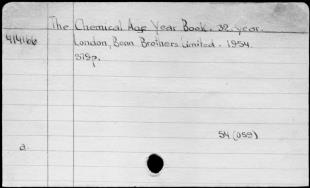 The Chemical Age Year Book. 32. year.
414166
London, Benn Brothers Limited. 1954.
519p.
54 (059)
a.